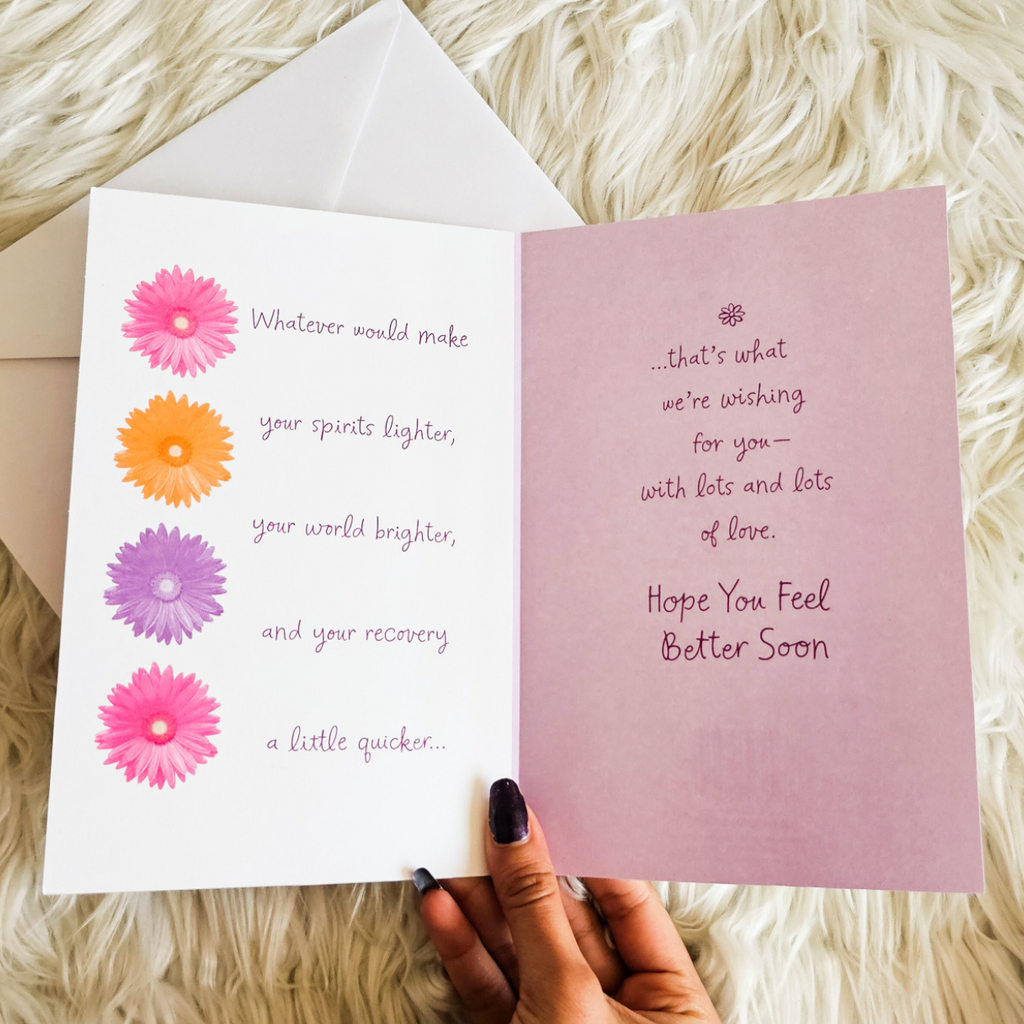 Whatever would make
your spirits lighter,
your world brighter,
and your recovery
a little quicker...
...that's what
we're wishing
for you—
with lots and lots
of love.
Hope You Feel
Better Soon